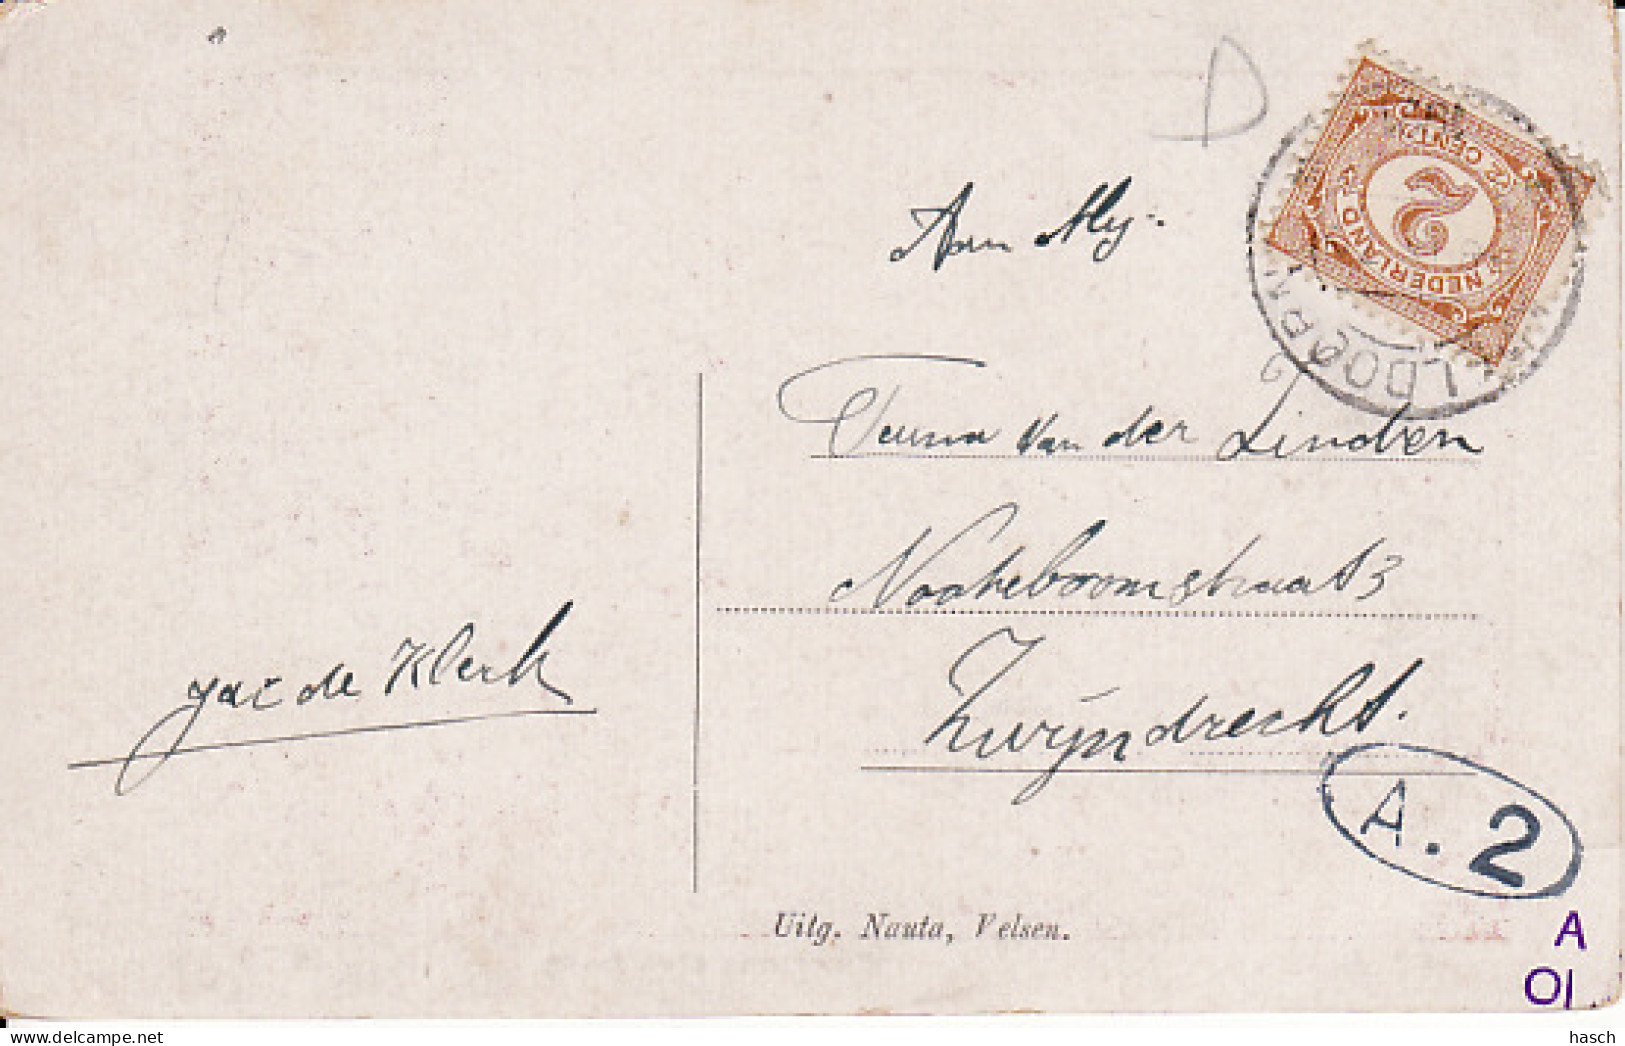 D
Aan Mej.
Teuna van der Linden
Noteboomstraat 3
Zwijndrecht.
Jac de Klerk
2
2 CENT 2
NEDERLAND
A.2
Uitg. Nauta, Velsen.
A
OI
hasch
www.delcampe.net